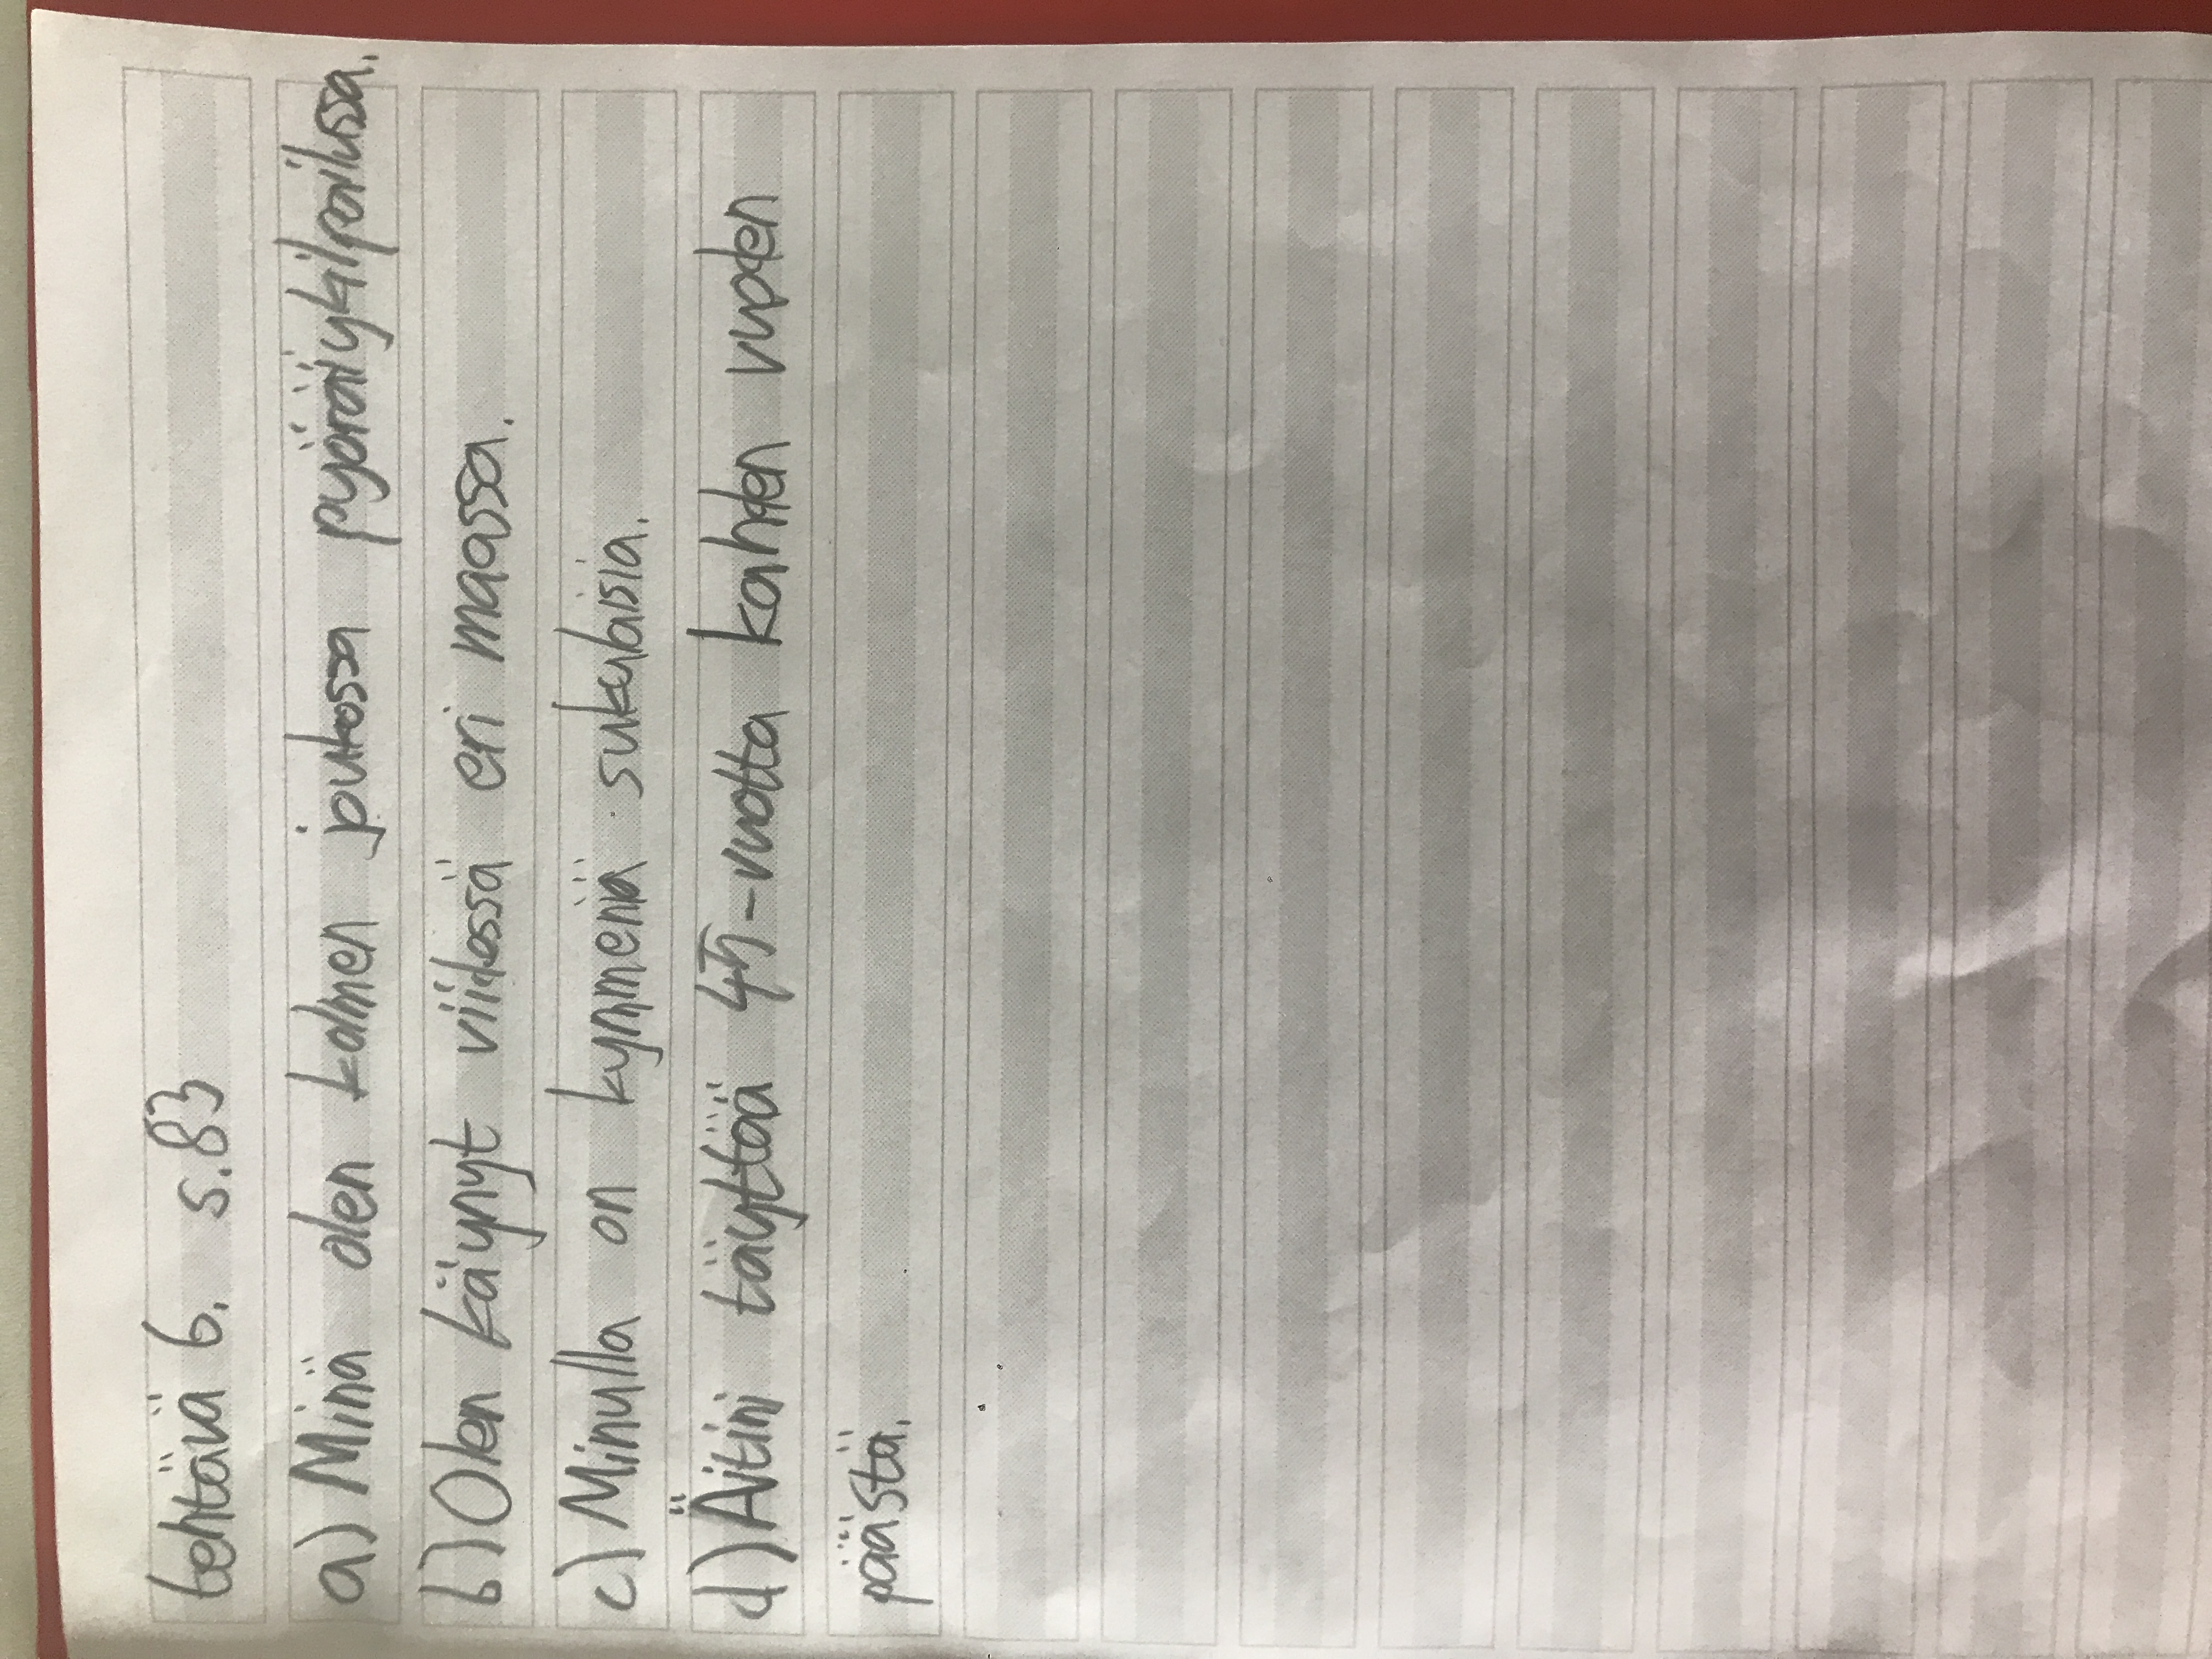 tehtävä 6. s.83
a) Minä olen kolmen joukossa pyöräilykilpailussa.
b) Olen käynyt viidessä eri maassa.
c) Minulla on kymmeniä sukulaisia.
d) Äitini täyttää 45-vuotta kahden vuoden
päästä.